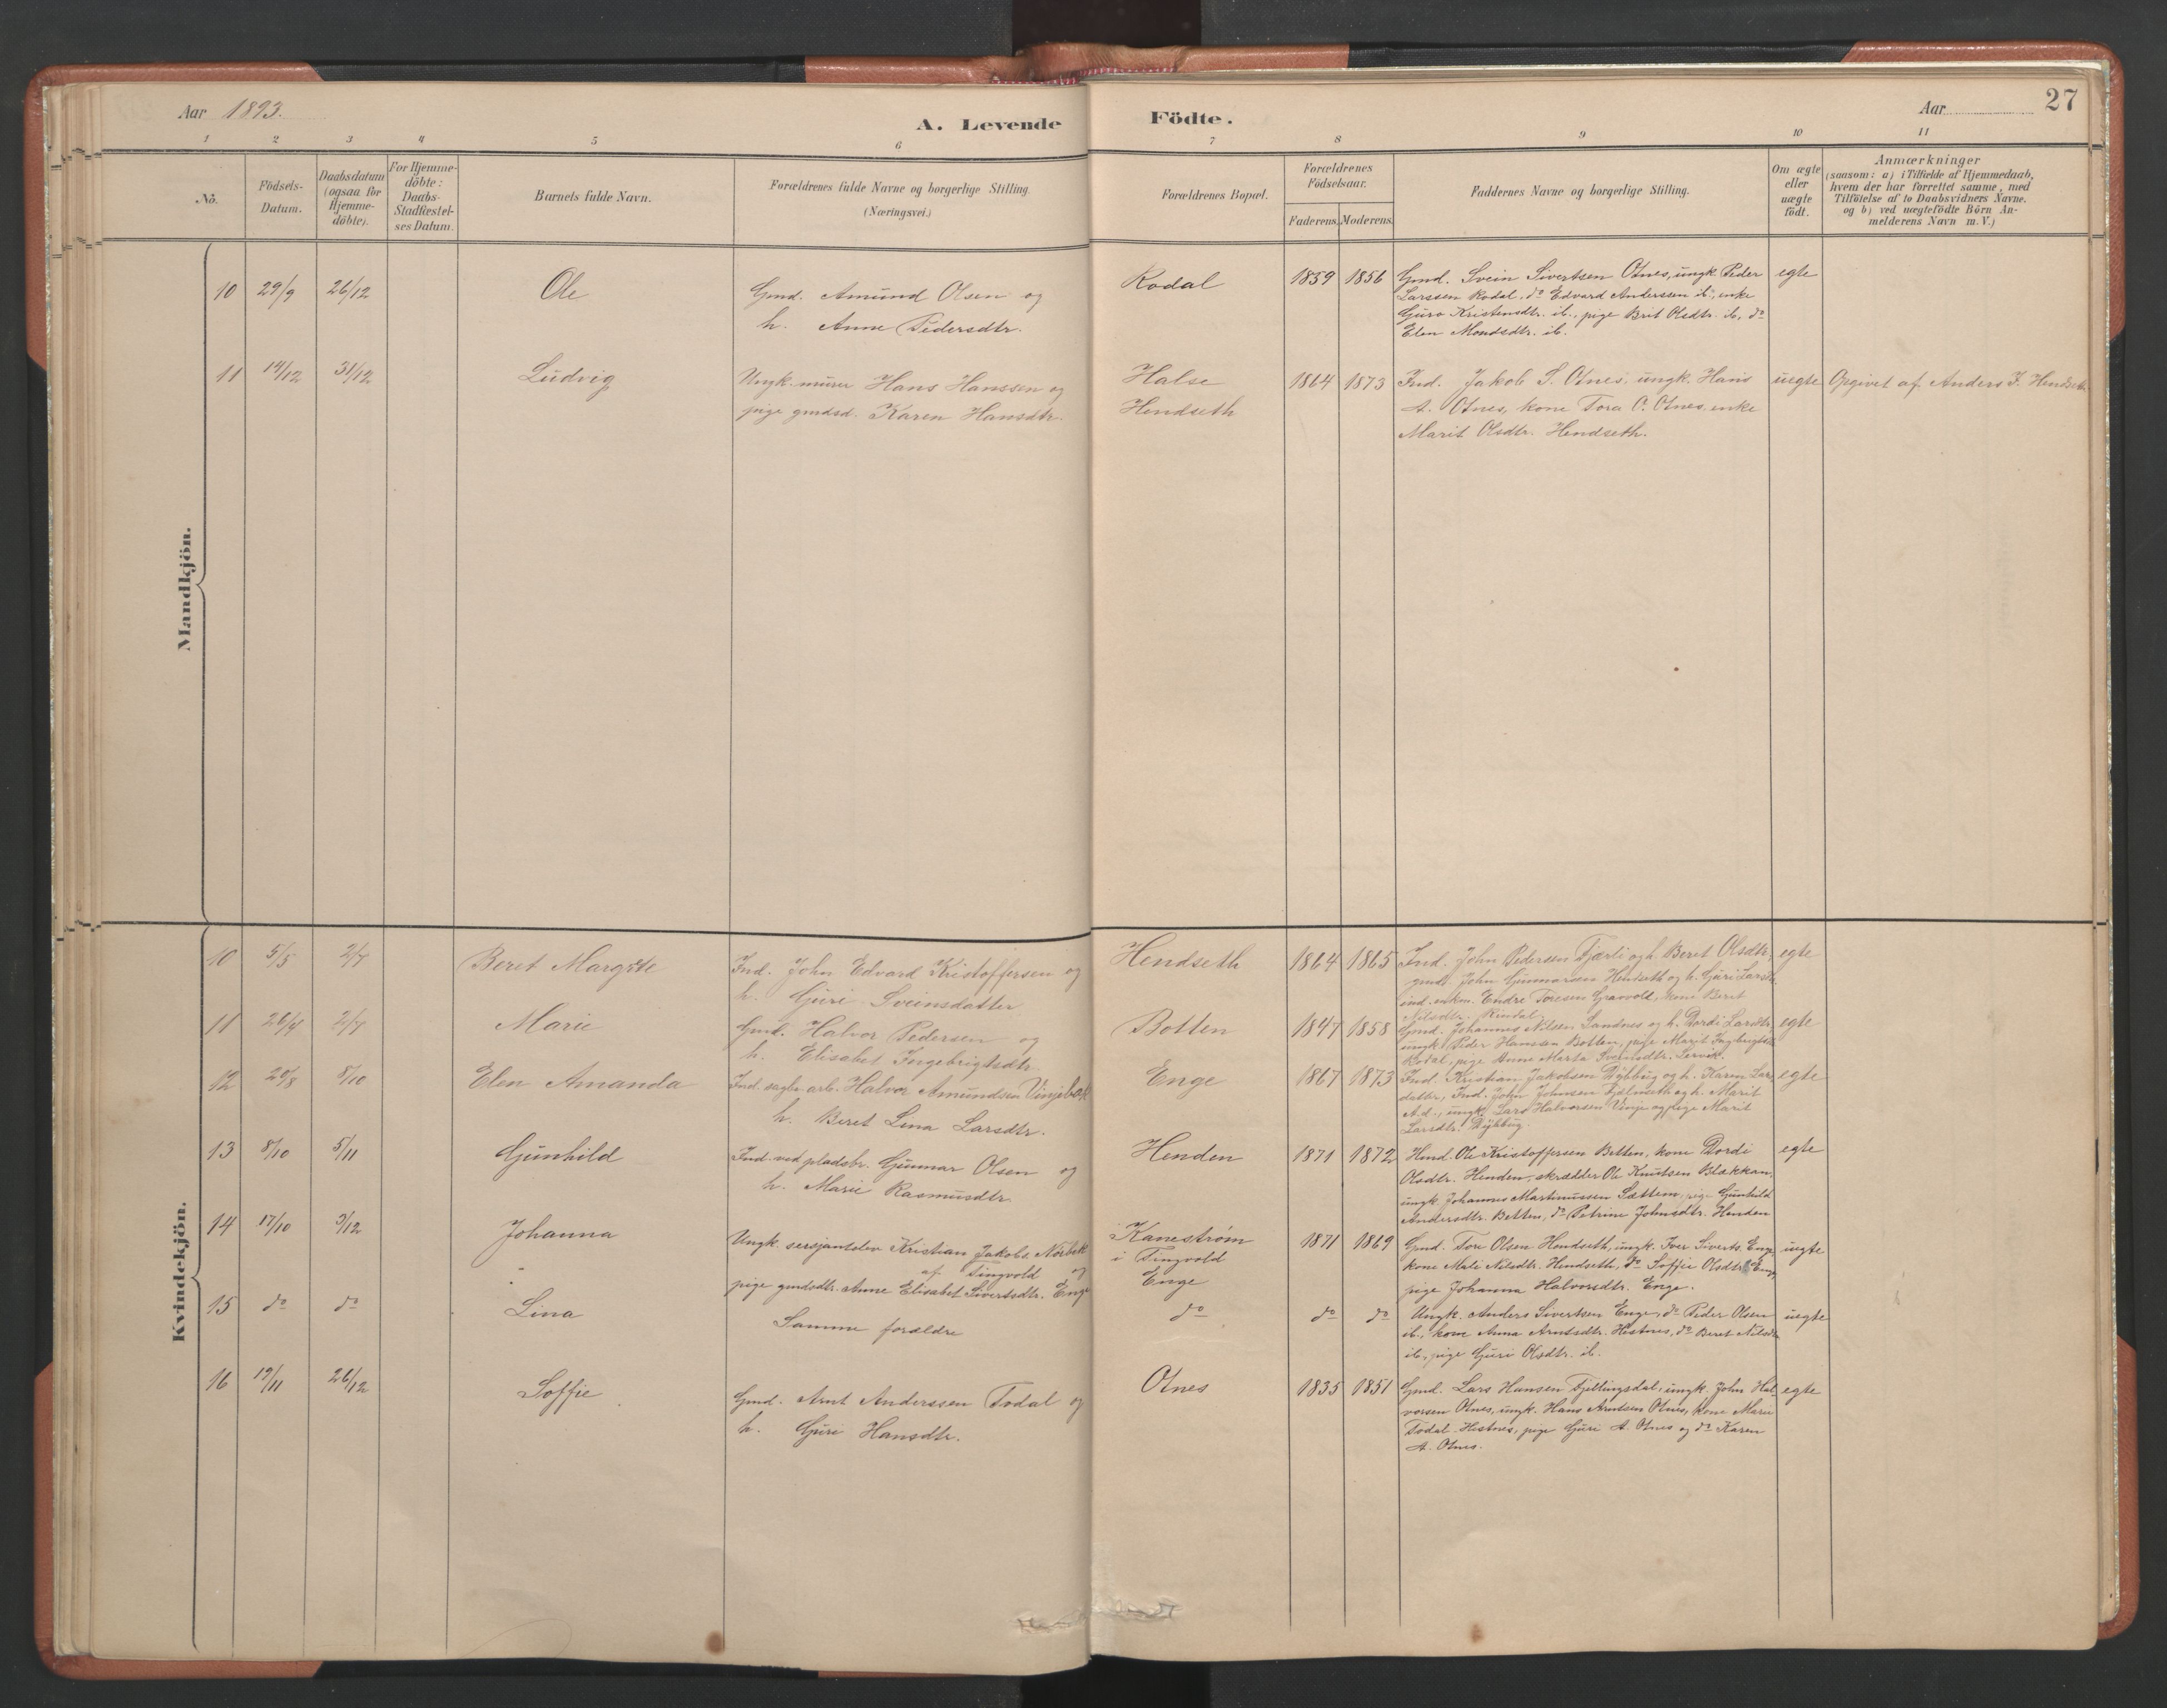 Aar 1893.
A. Levende Födte.
Aar
27
1 2 3 4 5 6 7 8 9 10 11
No.
Födsels-Datum.
Daabsdatum (ogsaa for Hjemme-döbte).
For Hjemme-döbte: Daabs-Stadfæstel-ses Datum.
Barnets fulde Navn.
Forældrenes fulde Navne og borgerlige Stilling. (Næringsvei.)
Forældrenes Bopæl.
Forældrenes Födselsaar.
Faderens. Moderens.
Faddernes Navne og borgerlige Stilling.
Om ægte eller uægte födt.
Anmærkninger
(saasom: a) i Tilfælde af Hjemmedaab,
hvem der har forrettet samme, med
Tilföielse af to Daabsvidners Navne.
og b) ved uægtefödte Börn An-
melderens Navn m. V.)
Mandkjön.
10 29/9 26/12 Ole Gmd. Amund Olsen og Rodal 1859 1856 Gmd. Svein Sivertsen Otnes, ungk. Peder egte
h. Anne Pedersdtr. Larssen Rodal, do Edvard Anderssen ib., enke
Guro Kristensdtr. ib., pige Brit Olsdtr. ib, do
Elen Mondsdtr. ib.
11 14/12 31/12 Ludvig Ungk. murer Hans Hanssen og Halse 1864 1873 Ind. Jakob S. Otnes, ungk. Hans uegte Opgivet af Anders J. Hendseth
pige gmdsd. Karen Hansdtr. Hendseth A. Otnes, kone Tora O. Otnes, enke
Marit Olsdtr. Hendseth.
Kvindekjön.
10 5/5 2/7 Beret Margite Ind. John Edvard Kristoffersen og Hendseth 1864 1865 Ind. John Pedersen Fjærli og h. Beret Olsdtr, egte
h. Guri Sveinsdatter gmd. John Gunnarsen Hendseth og h. Guri Larsdtr.
ind. enkm. Endre Toresen Grøvold, kone Beret
Nilsdtr. Rindal
11 26/4 2/7 Marie Gmd. Halvor Pedersen og Botten 1847 1858 Gmd. Johannes Nilsen Sandnes og h. Dordi Larsdtr, egte
h. Elisabet Ingebrigtsdtr. ungk. Peder Hanssen Botten, pige Marit Ingbrigtsd.
Rodal, pige Anne Marta Svensdtr. Lervik.
12 20/8 8/10 Elen Amanda Ind. sagbr. arb. Halvor Amundsen Vinjebæk Enge 1867 1873 Ind. Kristian Jakobsen Dybbug og h. Karen Lars egte
h. Beret Lina Larsdtr. datter, Ind. John Johnsen og h. Marit
A.d., ungk. Lars Halvorsen Vinje og pige Marit
Larsdtr. Dybbug.
13 8/10 5/11 Gunhild Ind. ved pladsbr. Gunnar Olsen og Henden 1871 1872 Hmd. Ole Kristoffersen Betten, kone Dordi egte
h. Marie Rasmusdtr. Olsdtr. Henden, skrædder Ole Knutsen Blækkan,
ungk. Johannes Martinussen Sættem, pige Gunhild
Andersdtr. Betten, do Petrine Johnsdtr. Henden
14 17/10 3/12 Johanna Ungk. sersjantelev Kristian Jakobs. Norbek Kanestrøm 1871 1869 Gmd. Tore Olsen Hendseth, ungk. Iver Siverts. Enge uegte
af Tingvold og i Tingvold kone Mali Nilsdtr. Hendseth, do Soffie Olsdtr. Enge,
pige gmdsdtr. Anne Elisabet Sivertsdtr. Enge Enge pige Johanna Halvorsdtr. Enge.
15 do do Lina Samme forældre do do do Ungk. Anders Sivertsen Enge, do Peder Olsen uegte
ib., kone Anna Arntsdtr. Hestnes, do Beret Nilsdtr.
ib., pige Guri Olsdtr. ib.
16 19/11 26/12 Soffie Gmd. Arnt Anderssen Todal og Otnes 1835 1851 Gmd. Lars Hansen Fjellingsdal, ungk. John Hal egte
h. Guri Hansdtr. vorsen Otnes, ungk. Hans Arntsen Otnes, kone Marie
Todal Hestnes, pige Guri A. Otnes og do Karen
A. Otnes.